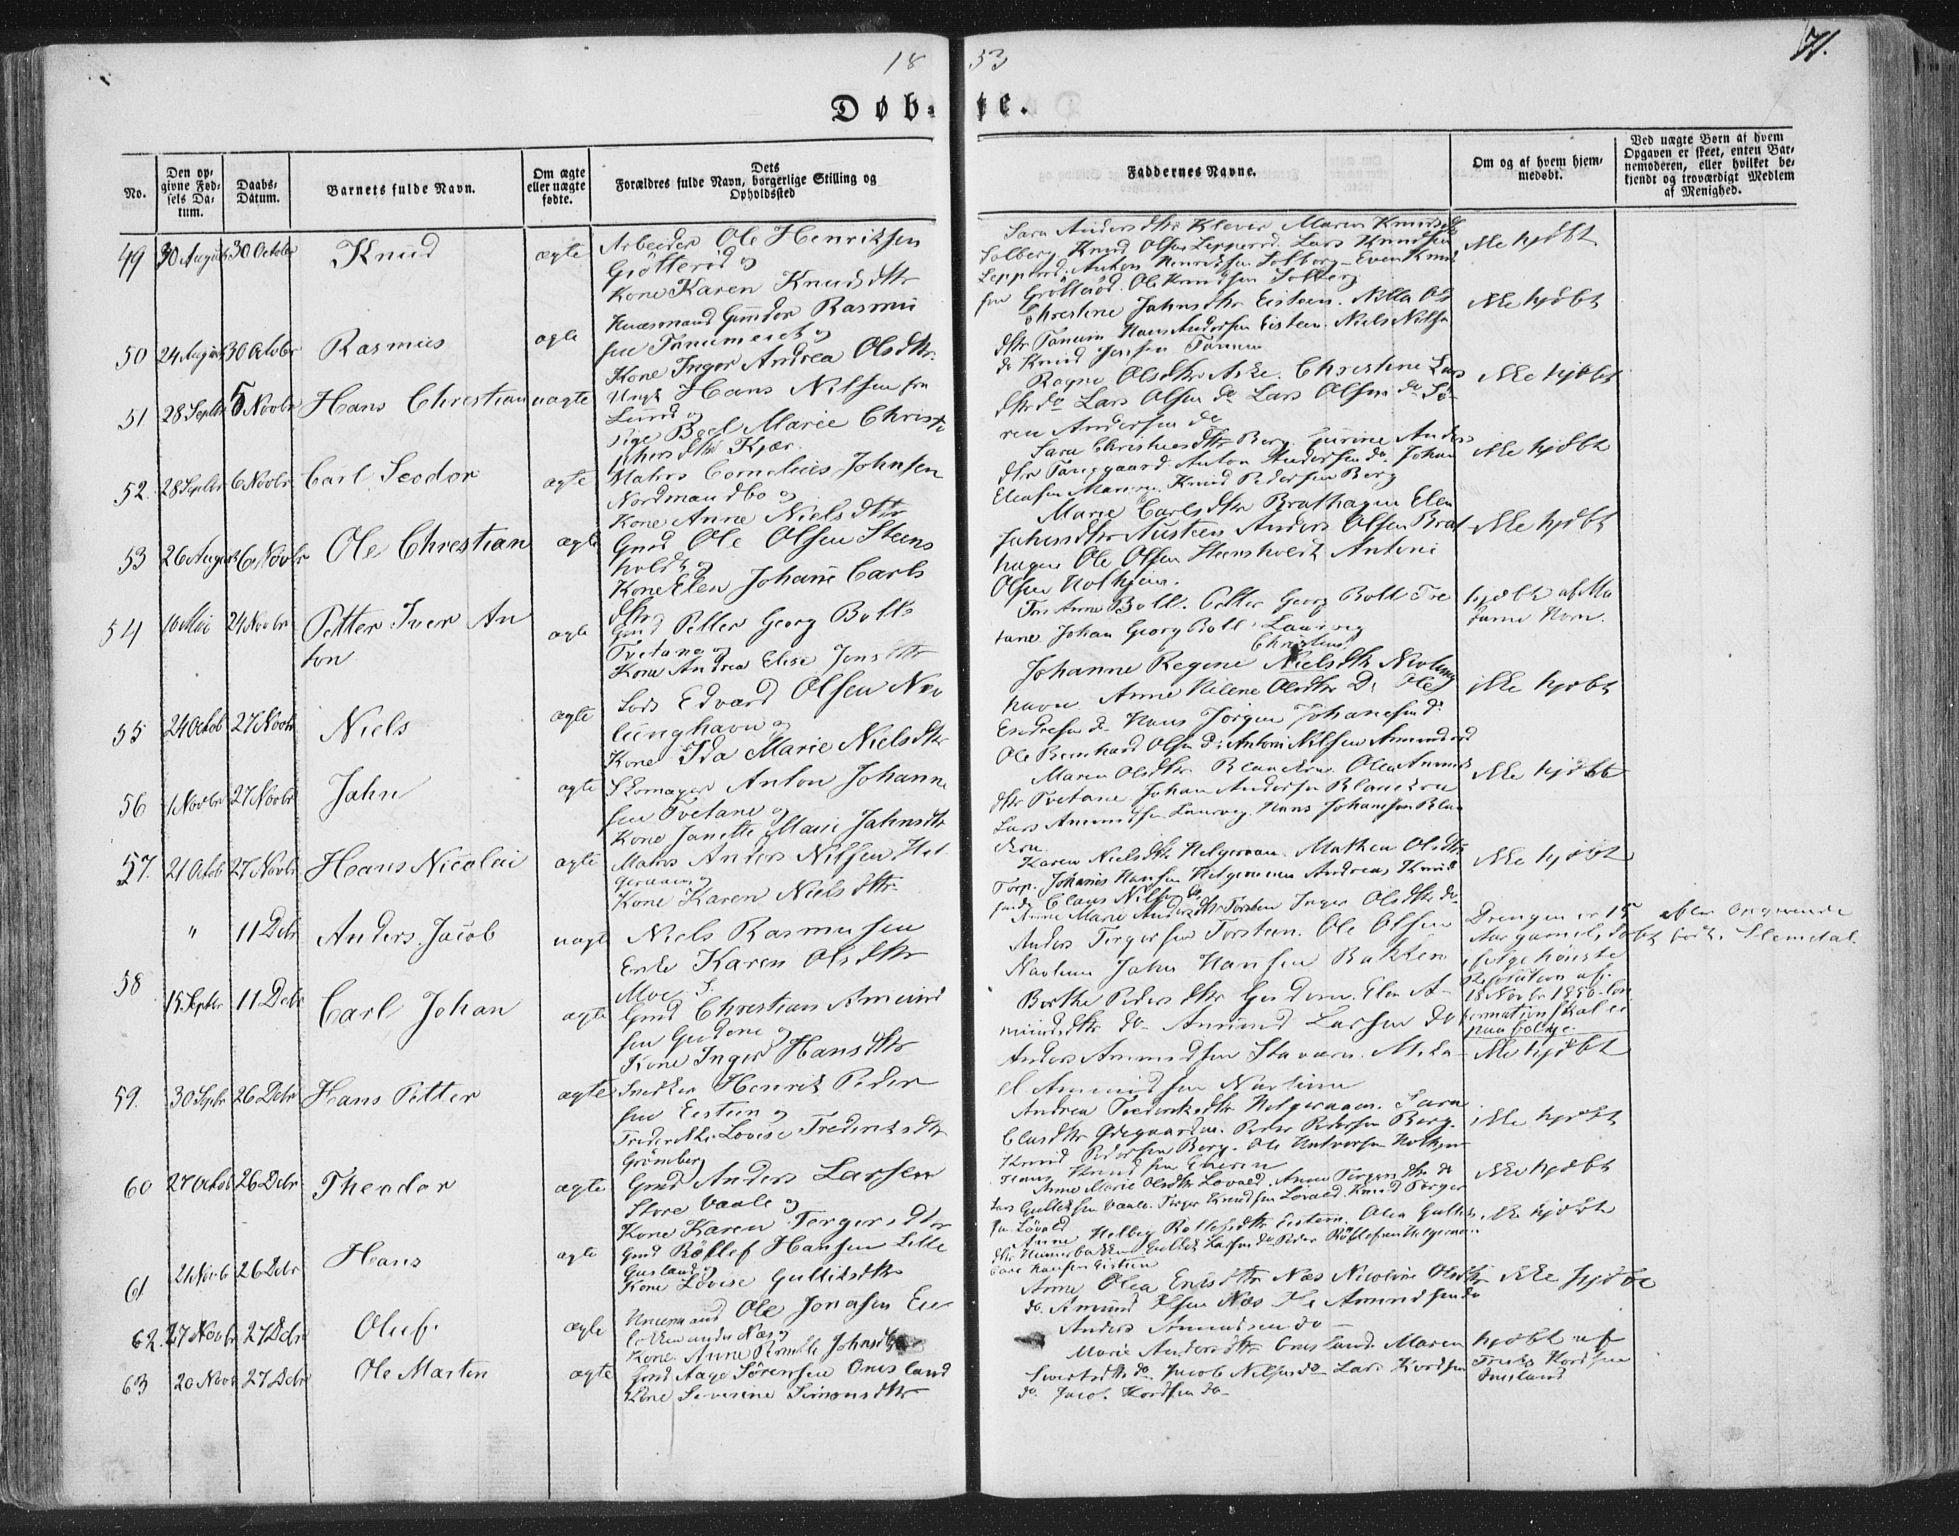 18 53
71.
Døb- te.
No.
Den op-
givne Fød-
sels Da-
tum.
Daabs-
Datum.
Barnets fulde Navn.
Om ægte
eller uægte
fødte.
Dets
Forældres fulde Navn, borgerlige Stilling og
Opholdssted
Faddernes Navne.
Om og af hvem hjem-
medøbt.
Ved uægte Børn af hvem
Opgaven er skeet, enten Bar-
nemoderen, eller hvilket be-
kjendt og troværdigt Medlem
af Menighed.
49 30 August 30 October Knud ægte
Arbeider Ole Henriksen
Grötteröd og
Kone Karen Knudsdtr
Sara Andersdtr Klever Maren Knudsdtr
Solberg Knud Olsen Lepperöd Lars Knudsen
Lepperöd Anton Henriksen Solberg Even Knud
sen Grötteröd Ole Knudsen Solberg
ikke hjdbt
50 24 August 30 October Rasmus ægte
Huusmand Gundor Rasmus
sen Tanumeiet og
Kone Inger Andrea Olsdtr
Christine Jahnsdtr Eisteen Nilla Ols
dtr Tanum Hans Andersen Eisteen Niels Nilsen
do Knud Jensen Tanum
ikke hjdbt
51 28 Septbr 5 Novbr Hans Christian uægte
Ungk Hans Nilsen fra
Lund og
Pige Beel Marie Christo
phersdtr Kjær
Ragne Olsdtr Aske Christine Lars
dtr do Lars Olsen do Lars Olsen do Sö-
ren Andersen do
ikke hjdbt
52. 28 Septbr 6 Novbr Carl Teodor ægte
Matros Cornelius Johnsen
Nordmandbo og
Kone Anne Nielsdtr
Sara Christensdtr Berg Gurine Anders
dtr Tanggaard Anton Andersen do Johan
Knud Pedersen Berg
ikke hjdbt
53 26 August 6 Novbr Ole Christian ægte
Gmd Ole Olsen Steens
holdt og
Kone Elen Johanne Carls
dtr
Marie Carlsdtr Brathagen Elen
Jahnsdtr Austeen Anders Olsen Brat
hagen Ole Olsen Steensholdt Antoni
Olsen Holhjem
ikke hjdbt
54 10 Mai 24 Novbr Petter Iver An
ton ægte
Gmd Petter Georg Boll
Tvetane og
Kone Andrea Elise Jensdtr
Frk Anne Boll Petter Georg Boll Tve
tane Johan Georg Boll Laurvig
hjdbt af Ma
dame Horn.
55 24 Octob 27 Novbr Niels ægte
Lods Edvard Olsen Nev
lunghavn og
Kone Ida Marie Nielsdtr
Christine
Johanne Regine Nielsdtr Nevlung
havn Anne Helene Olsdtr Do Ole
Endresen do Hans Jörgen Johanesen do
Ole Bernhard Olsen do Antoni Nilsen
ikke hjdbt
56 1 Novbr 27 Novbr Jahn ægte
Skomager Anton Johanne
sen Tvetane og
Kone Janette Marie Jahnsdtr
Maren Olsdtr Olea Amunds
dtr Tvetane Johan Andersen
Lars Amundsen Laurvig Hans Johansen
ikke hjdbt
57. 21 Octob 27 Novbr Hans Nicolai ægte
Matros Anders Nilsen Hel
geroaen og
Kone Karen Nielsdtr
Karen Nielsdtr Helgeroaen Mathea Olsdtr
Torp Johanes Hansen Helgeroaen Andreas Knud
sen do Claus Nilsen do
ikke hjdbt
" 11 Decbr Anders Jacob uægte
Niels Rasmusen
Enke Karen Olsdtr
Moe
Anne Marie Andersdtr Torsten Inger Olsdtr do
Anders Torgersen Torsteen Ole Olsen
Navlum Jahn Hansen Bakken
Drengen er 15
Aar gammel, döbt
ifølge høieste
Resolution af
18 Novbr 1850 Con
firmation skal ei
paafølge
58 15 Septbr 11 Decbr Carl Johan ægte
Gmd Christian Amund
sen Gusdone og
Kone Inger Hansdtr
Berthe Pedersdtr Elen A-
mundsdtr do Amund Larsen do
Anders Amundsen Stavern
Amundsen Navlum
ikke hjdbt
59. 30 Septbr 26 Decbr Hans Petter ægte
Snedker Henrik Peder
sen Eisteen og
Frederikke Lovise Frederiksdtr
Grömberg
Andrea Frederiksdtr Helgeroaen Sara
Clausdtr Ödegaarden Peder Pedersen Berg
Knud Pedersen Berg Ole Halvorsen Holhjem
ikke hjdbt
60 27 Octob 26 Decbr Theodor ægte
Gmd Anders Larsen
Store Vaale og
Kone Karen Torgersdtr
Anne Marie Olsdtr Lövald Anne Torgersdtr do
Lars Gulliksen Vaale Torger Knudsen Lövald Knud Torger
sen Lövald
ikke hjdbt
61 21 Novb 26 Decbr Hans ægte
Gmd Röllef Hansen Lille
Gusland og
Kone Lovise Gulliksdtr
Anne Helvig Rollefsdtr Eisteen Olea Gulliks
dtr Gullik Larsen do Peder Röllefsen Helgeroaen
Hansen Eisteen
ikke hjdbt
62. 27 Novbr 27 Decbr Oluf ægte
Huusmand Ole Jonasen
under Næs og
Kone Anne Johnsdtr
Anne Olea Eriksdtr Næs Nicoline Olsdtr
do Amund Olsen Næs Ole Amundsen do
Anders Amundsen do
ikke hjdbt
63 20 Novbr 27 Decbr Ole Marten ægte
Gmd Aage Sörensen Omsland
Kone Severine Simonsdtr
Marie Andersdtr Omsland Maren
Sivertsdtr do Jacob Nilsen do Lars Kordsen
do Jacob Kordsen do
hjdbt af
Kordsen
Omsland